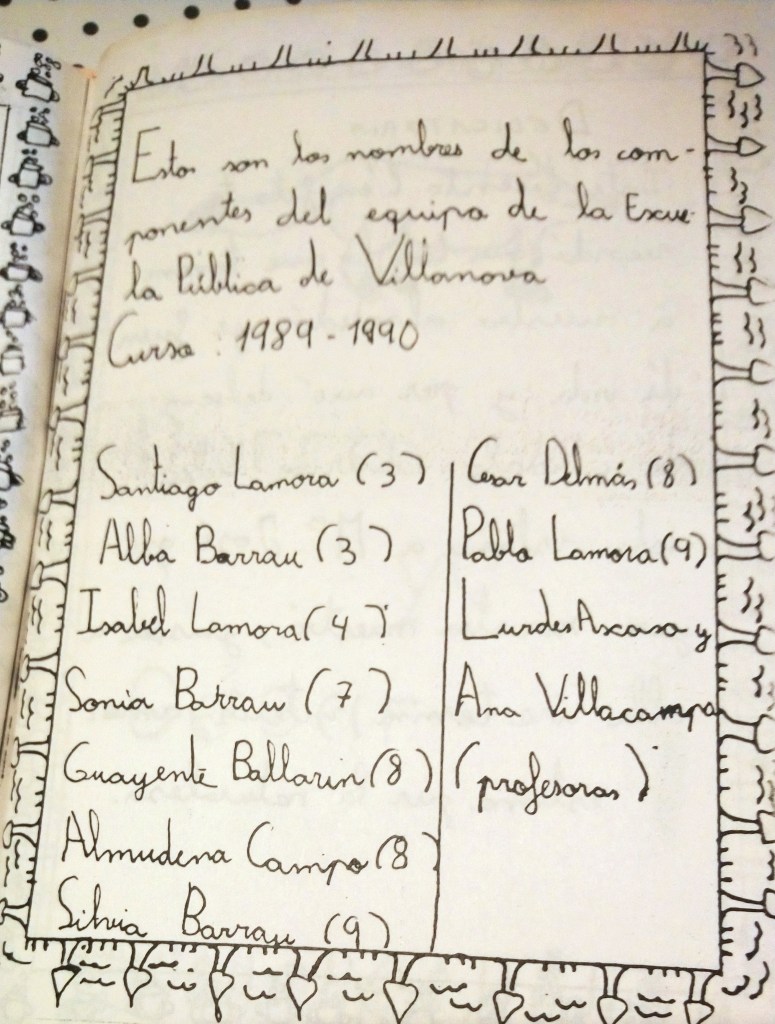 Estos son los nombres de los com-
ponentes del equipo de la Escue-
la Pública de Villanova
Curso : 1989-1990
Santiago Lamora (3)
Alba Barrau (3)
Isabel Lamora (4)
Sonia Barrau (7)
Guayente Ballarin (8)
Almudena Campo (8)
Silvia Barrau (9)
Cesar Delmás (8)
Pablo Lamora (9)
Lurdes Ascaso y
Ana Villacampa
(profesoras)